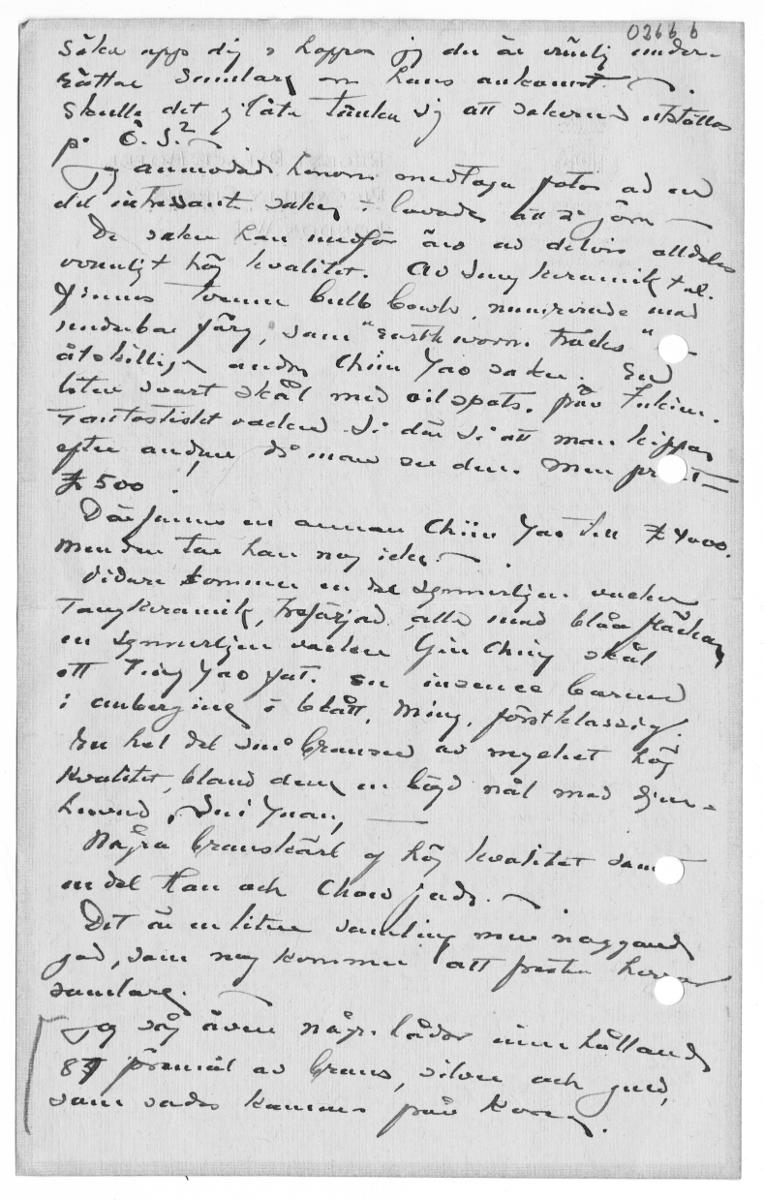 0266 b
söka upp dig o hoppas jag du är vänlig under-
rätta Samlare om hans ankomst.
Skulle det ej låta tänka sig att sakerna utställas
på Ö. S.?
Jag anmodade honom medtaga foton av en
del intressanta saker o lovade att så göra
De saker han medför äro av delvis alldeles
ovanligt hög kvalitet. Av Sung keramik t. ex.
finnes tvenne bulb bowls, numrerade med
underbar färg, samt "earth worm tracks"
åtskilliga andra Chün Yao saker. En
liten svart skål med oilspots, från Fukien.
Fantastiskt vacker. Så där så att man kippar
efter andan, då man ser den. Men priset =
£ 500 !
Där finns en annan Chün Yao till £ 4000.
men den tar han nog icke.
Vidare kommer en del synnerligen vacker
Tang keramik, trefärgad, alla med blåa fläckar,
en synnerligen vacker Yin Ching skål
ett Ting Yao fat. En insence burner
i aubergine o blått, Ming, förstklassig.
En hel del små bronser av mycket hög
kvalitet, bland dem en böjd nål med djur-
huvud, Sui Yuan,
Några bronskärl af hög kvalitet samt
en del Han och Chow jade.
Det är en liten samling men noggrant
vald, som nog kommer att fresta herrar
samlare.
Jag såg även några lådor innehållande
87 föremål av brons, silver och guld,
som sades komma från Korea.